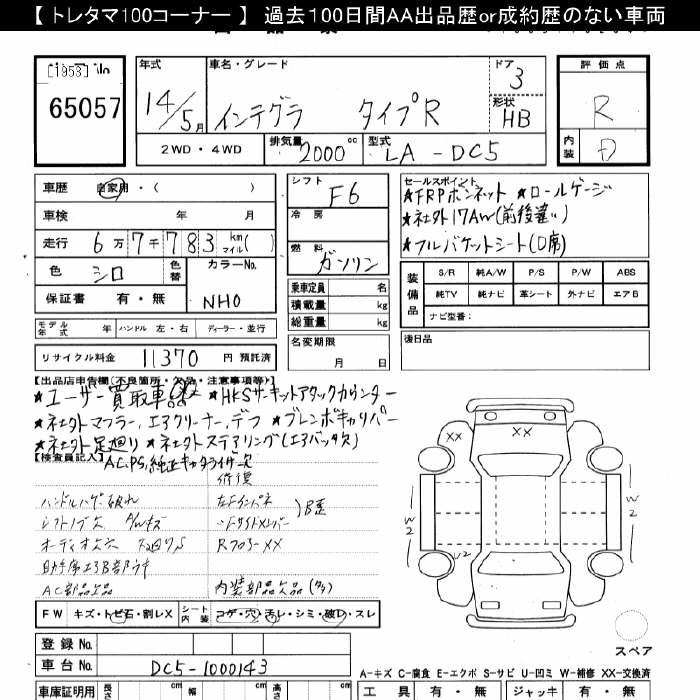 【 トレタマ100コーナー 】 過去100日間AA出品歴or成約歴のない車両
65057
年式
14/5月
車名・グレード
インテグラ タイプR
ドア
3
形状
HB
評価点
R
内装
D
2WD・4WD
排気量
2000cc
型式
LA-DC5
車歴
自家用・( )
車検 年 月
走行 6万7千783km マイル( )
色 シロ
色替
カラーNo.
NH0
保証書 有・無
シフト
F6
冷房
燃料
ガソリン
乗車定員 名
積載量 kg
総重量 kg
名変期限
月 日
セールスポイント
★FRPボンネット ★ロールゲージ
★社外17AW(前後違い)
★フルバケットシート(D席)
装備品
S/R 純A/W P/S P/W ABS
純TV 純ナビ 革シート 外ナビ エアB
ナビ型番:
後日品
モデル年式 年 ハンドル 左・右 ディーラー・並行
リサイクル料金 11370 円 預託済
【出品店申告欄(不良箇所・欠品・注意事項等)】
★ユーザー買取車 ★HKSサーキットアタックカウンター
★社外マフラー,エアクリーナー,デフ ★ブレンボキャリパー
★社外足廻り ★社外ステアリング(エアバッグ欠)
【検査員記入】
AC,PS,純正キャタライザー欠
修復
ハンドルハゲ破れ
左Fインパネ
〃Fサイドメンバー
)B歪
シフトノブ欠
オーディオ欠
助手席エアB部ウキ
AC部品欠品
内装部品欠品(多)
FW キズ・トビ石・割レX
シート内装 コゲ・穴・汚レ・シミ・破レ・スレ
登録No.
車台No. DC5-1000143
XX XX
W2 W2 W2
スペア
A-キズ C-腐食 E-エクボ S-サビ U-凹ミ W-補修 XX-交換済
車庫証明用 長さ cm 幅 cm 高さ cm
工具 有・無 ジャッキ 有・無